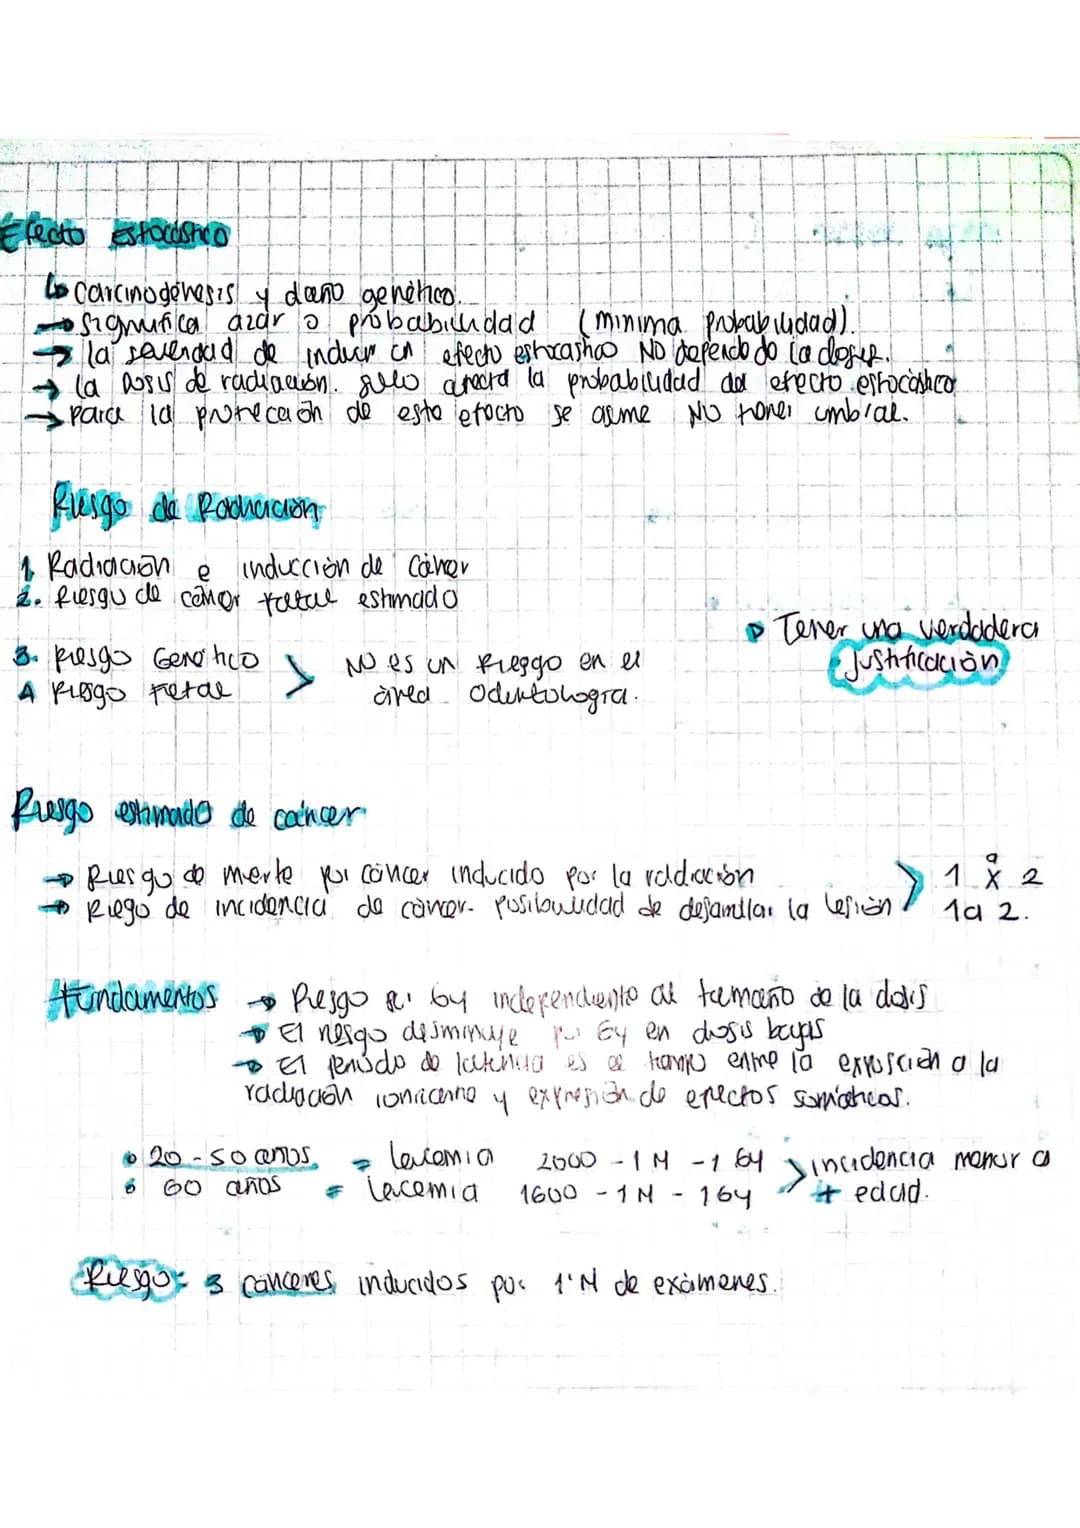 Efecto Estocástico
Carcinogénesis y daño genético.
significa azar o probabilidad (minima probabilidad).
la severidad de inducir un efecto estocastico NO depende de la dosis.
la Dosis de radiación. sólo afecta la probabilidad del efecto estocástico
Para la protección de este efecto se asume NO tener umbral.
Riesgo de Radiación
1. Radiación e inducción de Cáncer
2. Riesgo de cáncer fatal estimado
Tener una verdadera
Justificación
3. Riesgo Genético
4 Riesgo Fetal
> No es un Riesgo en el
área Odontología.
Riesgo estimado de cáncer
Riesgo de Muerte por cáncer inducido por la radiación
Riego de incidencia de cáncer. Posibilidad de desarrollar la lesión
> 1 x 2
1a 2.
Fundamentos → Riesgo por Gy independiente al tamaño de la dosis
El riesgo desminuye por Gy en dosis bajas
El periodo de latencia es el tiempo entre la exposición a la
radiación ionicante y expresión de efectos somáticos.
20-50 años = leucemia 2000 - 1 M - 1 Gy
60 años = leucemia 1600 - 1 M - 1Gy
> incidencia menor a
+ edad.
Riesgo: 3 cánceres inducidos por 1'M de exámenes.